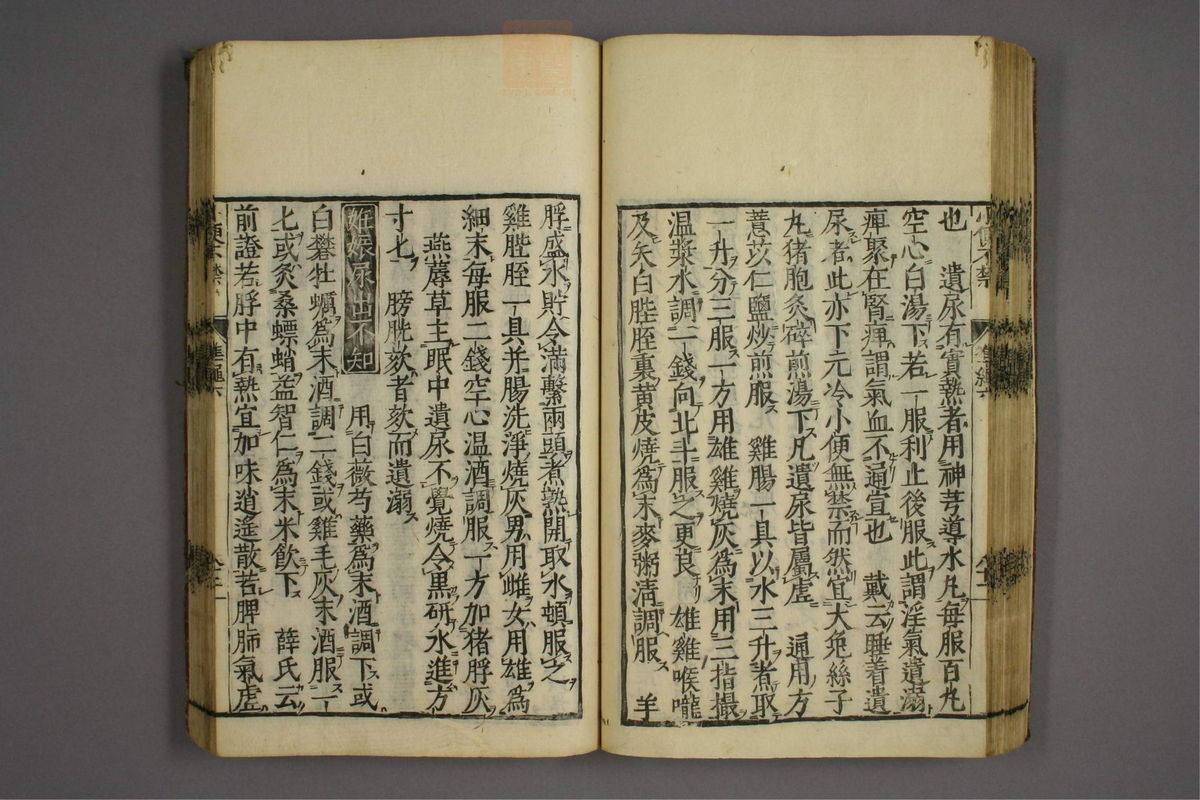 也　遺尿有實熱者用神芎導水丸每服百丸
空心白湯下若一服利止後服此謂淫氣遺溺
痺聚在腎痺謂氣血不通宣也　戴云睡着遺
尿者此亦下元冷小便無禁而然宜大兔絲子
丸猪胞灸碎煎湯下凡遺尿皆屬虛　通用方
薏苡仁鹽炒煎服　雞腸一具以水三升煮取
一升分三服一方用雄雞燒灰爲末用三指撮
温漿水調二錢向北斗服之更良　雄雞喉嚨
及矢白膍胵裏黄皮燒爲末麥粥清調服　羊
脬盛水貯令滿繫兩頭煮熟開取水頓服之
雞膍胵一具并腸洗淨燒灰男用雌女用雄爲
細末每服二錢空心温酒調服一方加猪脬灰
燕蓐草主眠中遺尿不覺燒令黒研水進方
寸匕　膀胱欬者欬而遺溺
姙娠尿出不知　用白薇芍藥爲末酒調下或
白礬牡蠣爲末酒調二錢或雞毛灰末酒服一
匕或灸桑螵蛸益智仁爲末米飲下　薛氏云
前證若脬中有熱宜加味逍遥散若脾肺氣虛